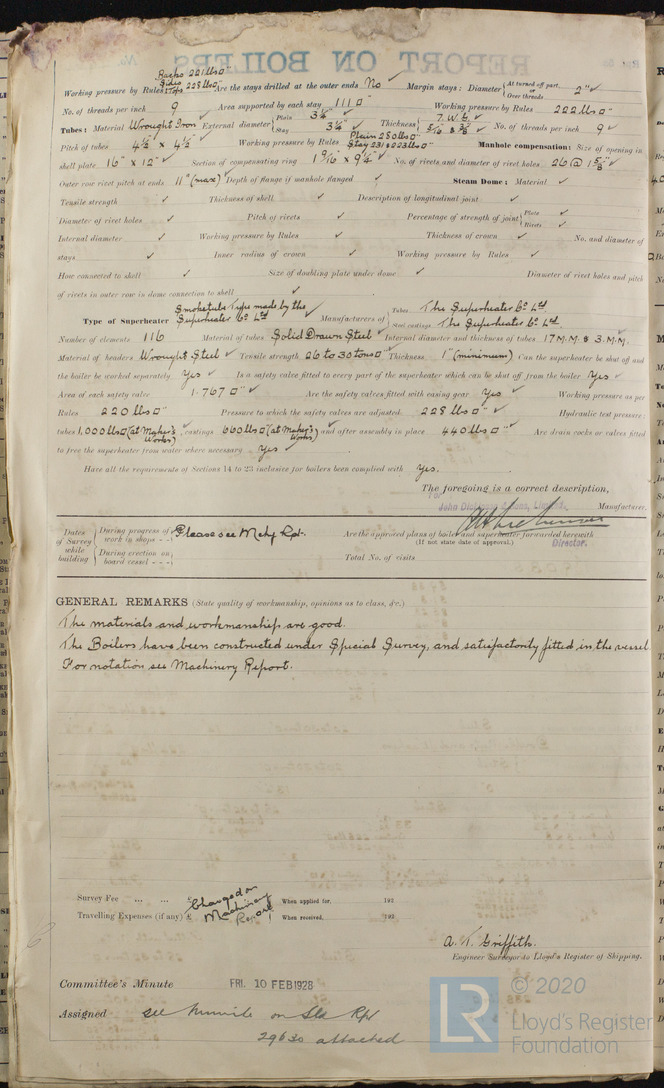 REPORT ON BOILERS
Backs 221 lbs□"
Sides
Working pressure by Rules Tops 228 lbs□" Are the stays drilled at the outer ends No Margin stays: Diameter { At turned off part, or Over threads 2"
No. of threads per inch 9 Area supported by each stay 111□" Working pressure by Rules 222 lbs□"
Tubes: Material Wrought Iron External diameter { Plain 3¼" Stay 3¼" Thickness { 7.W.G. 5/16 & 3/8" No. of threads per inch 9
Pitch of tubes 4½" × 4½" Working pressure by Rules Plain 280 lbs□" Stay 231 & 223 lbs□" Manhole compensation: Size of opening in
shell plate 16" × 12" Section of compensating ring 1 9/16 × 9¼" No. of rivets and diameter of rivet holes 26 @ 1 5/8"
Outer row rivet pitch at ends 11" (max) Depth of flange if manhole flanged Steam Dome: Material
Tensile strength Thickness of shell Description of longitudinal joint
Diameter of rivet holes Pitch of rivets Percentage of strength of joint { Plate Rivets
Internal diameter Working pressure by Rules Thickness of crown No. and diameter of
stays Inner radius of crown Working pressure by Rules
How connected to shell Size of doubling plate under dome Diameter of rivet holes and pitch
of rivets in outer row in dome connection to shell
Type of Superheater Smoketube Type made by the Superheater Co Ltd Manufacturers of { Tubes The Superheater Co Ltd Steel castings The Superheater Co Ltd.
Number of elements 116 Material of tubes Solid Drawn Steel Internal diameter and thickness of tubes 17 M.M. & 3 M.M.
Material of headers Wrought Steel Tensile strength 26 to 30 tons□" Thickness 1" (minimum) Can the superheater be shut off and
the boiler be worked separately Yes Is a safety valve fitted to every part of the superheater which can be shut off from the boiler Yes
Area of each safety valve 1.767□" Are the safety valves fitted with easing gear Yes Working pressure as per
Rules 220 lbs□" Pressure to which the safety valves are adjusted 228 lbs□" Hydraulic test pressure:
tubes 1,000 lbs□" (at Maker's Works) castings 660 lbs□" (at Maker's Works) and after assembly in place 440 lbs□" Are drain cocks or valves fitted
to free the superheater from water where necessary Yes
Have all the requirements of Sections 14 to 23 inclusive for boilers been complied with Yes.
The foregoing is a correct description,
For
Manufacturer.
Director.
Dates of Survey while building { During progress of work in shops - - Please see Mchy Rpt. Are the approved plans of boiler and superheater forwarded herewith
(If not state date of approval.)
During erection on board vessel - - - Total No. of visits
GENERAL REMARKS (State quality of workmanship, opinions as to class, &c.)
The materials and workmanship are good.
The Boilers have been constructed under Special Survey, and satisfactorily fitted in the vessel
For notation see Machinery Report.
Survey Fee ... ... £ Charged on When applied for, 192
Travelling Expenses (if any) £ Machinery Report When received, 192
A. T. Griffith.
Engineer Surveyor to Lloyd's Register of Shipping.
Committee's Minute FRI. 10 FEB 1928
Assigned see minute on Sld Rpt
29630 attached
LR © 2020
Lloyd's Register
Foundation